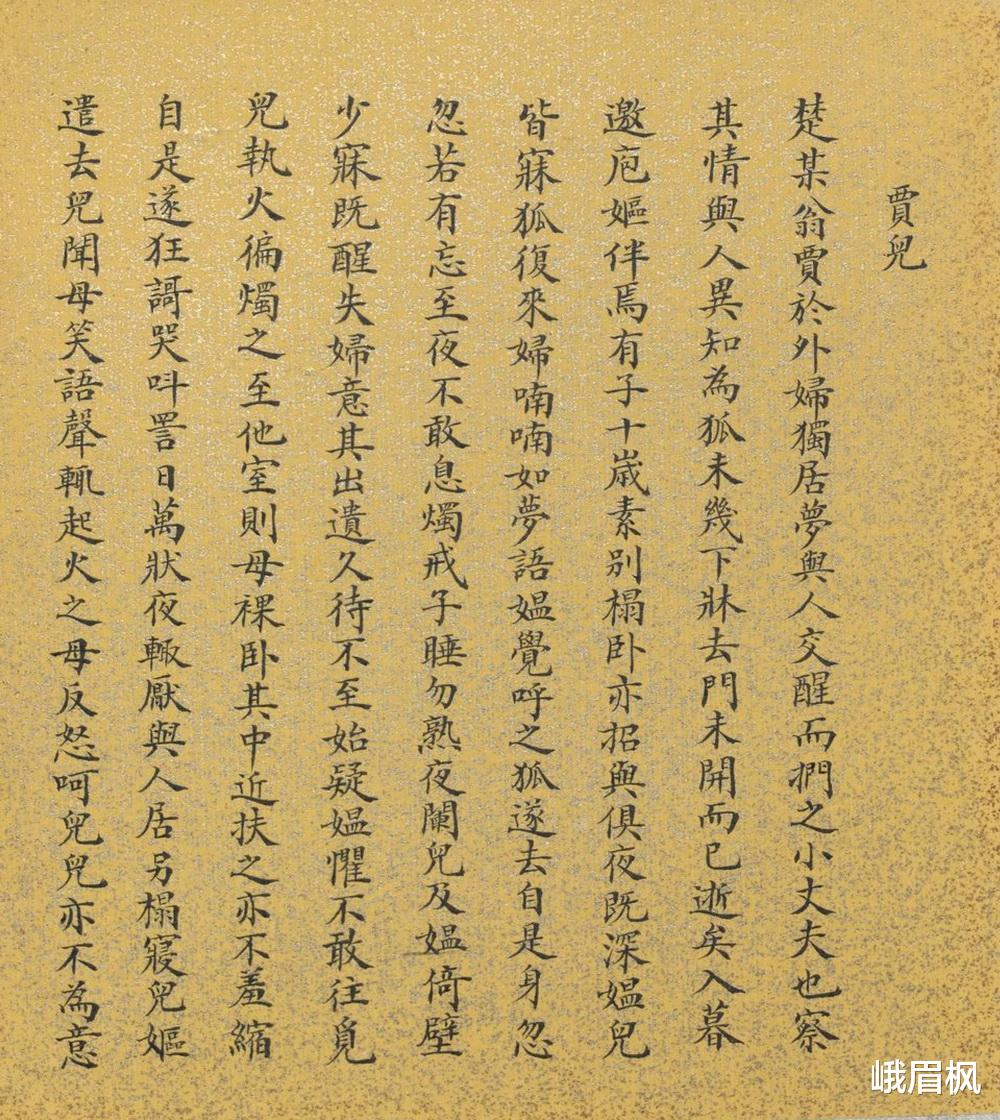 賈兒
楚某翁賈於外婦獨居夢與人交醒而捫之小丈夫也察
其情與人異知為狐未幾下牀去門未開而已逝矣入暮
邀庖嫗伴焉有子十歲素別榻臥亦招與俱夜既深媼兒
皆寐狐復來婦喃喃如夢語媼覺呼之狐遂去自是身忽
忽若有忘至夜不敢息燭戒子睡勿熟夜闌兒及媼倚壁
少寐既醒失婦意其出遺久待不至始疑媼懼不敢往覓
兒執火徧燭之至他室則母裸臥其中近扶之亦不羞縮
自是遂狂謌哭叫詈日萬狀夜輙厭與人居另榻寢兒嫗
遣去兒聞母笑語聲輒起火之母反怒呵兒兒亦不為意
峨眉枫